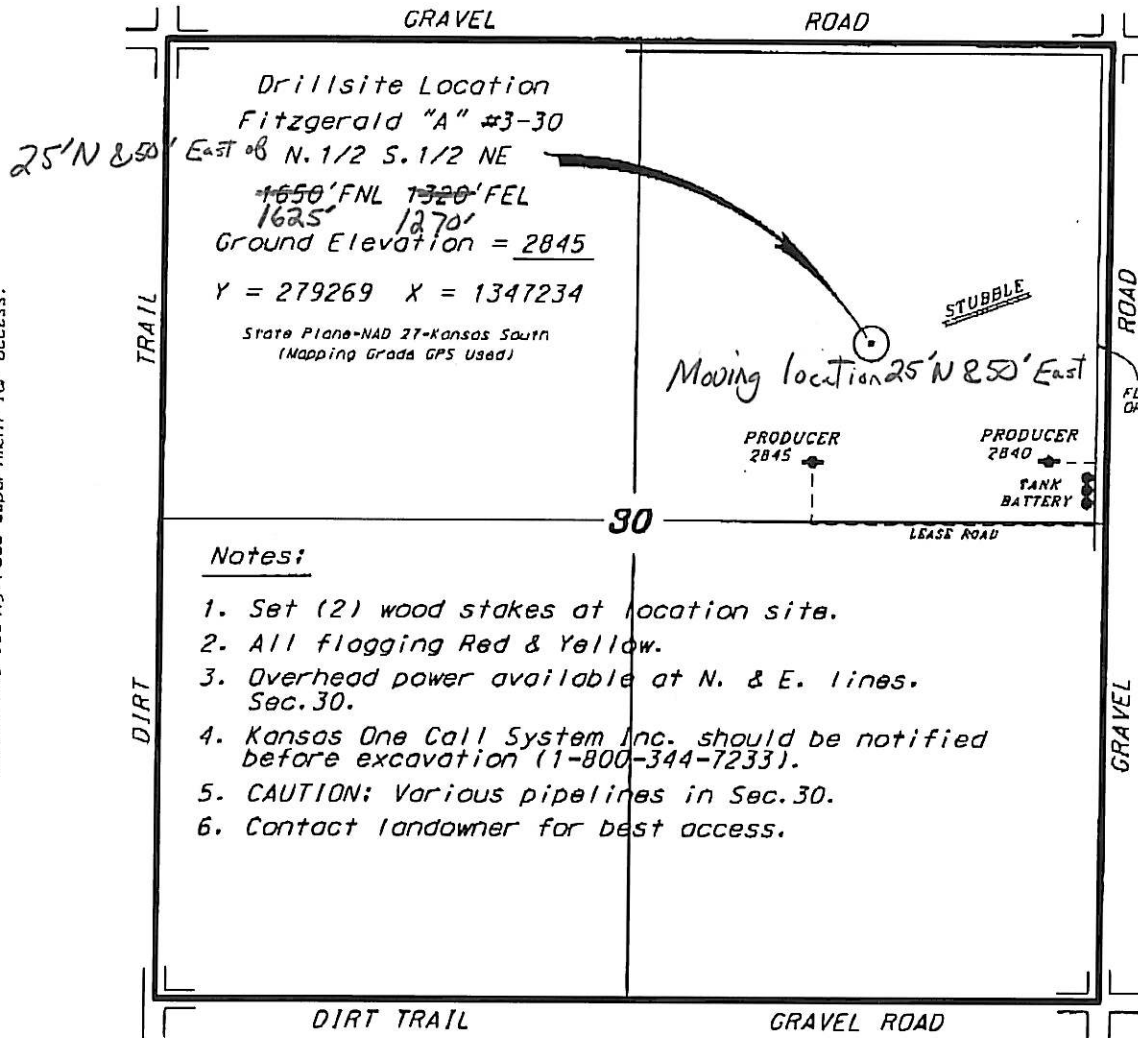 GRAVEL ROAD
Drillsite Location
Fitzgerald "A" #3-30
25'N & 50' East of N. 1/2 S. 1/2 NE
1650' FNL 1320' FEL
1625' 1270'
Ground Elevation = 2845
Y = 279269 X = 1347234
State Plane-NAD 27-Kansas South
(Mapping Grade GPS Used)
TRAIL
DIRT
STUBBLE
ROAD
GRAVEL
Moving location 25'N & 50' East
PRODUCER
2845
PRODUCER
2840
TANK
BATTERY
LEASE ROAD
30
Notes:
1. Set (2) wood stakes at location site.
2. All flagging Red & Yellow.
3. Overhead power available at N. & E. lines.
Sec.30.
4. Kansas One Call System Inc. should be notified
before excavation (1-800-344-7233).
5. CAUTION: Various pipelines in Sec.30.
6. Contact landowner for best access.
DIRT TRAIL GRAVEL ROAD